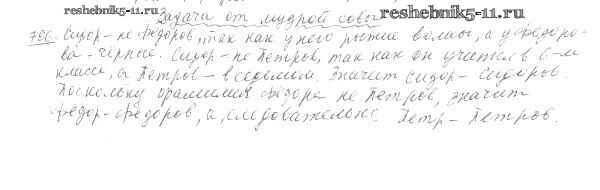 www.reshebnik5-11.ru
Задачи от мудрой совы
www.reshebnik5-11.ru
786. Сидор - не Федоров, так как у него рыжие волосы, а у Федоро-
ва - черные. Сидор - не Петров, так как он учится в 6-м
классе, а Петров - в седьмом. Значит Сидор - Сидоров.
Поскольку фамилия Федора не Петров, значит
Федор - Федоров, а, следовательно Петр - Петров.